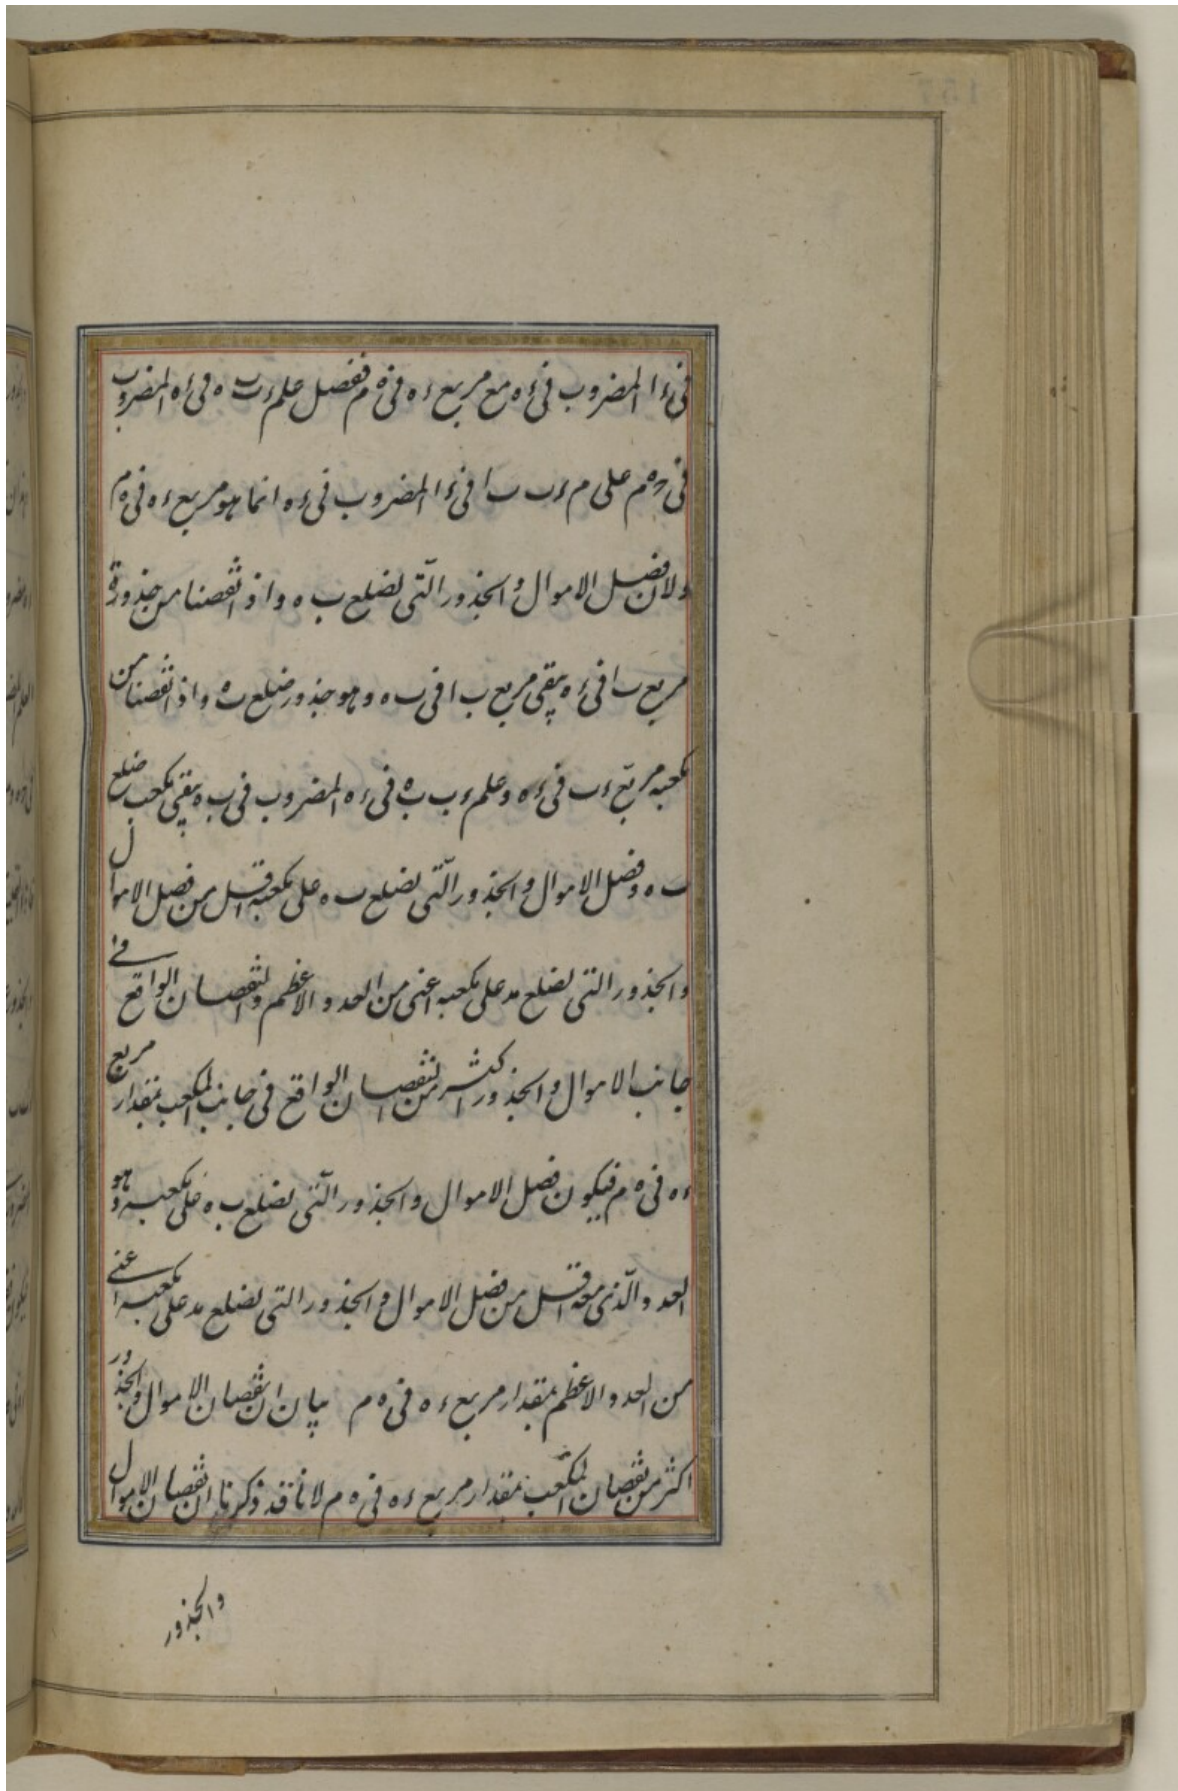 فی ء ا المضروب فی ء ه مع مربع ء ه فی ه م ففضل علم ء ب ه فی ء ه المضروب
فی ه م علی م ء ب ب ا فی ء ا المضروب فی ء ه انما هو مربع ء ه فی ه م
ولان فضل الاموال والجذور الّتی لضلع ب ه واذ انقصنا من جذوره
مربع ب ا فی ء ه یبقی مربع ب ا فی ب ه وهو جذور ضلع ب ه واذ انقصنا من
مکعبه مربّع ء ب فی ء ه وعلم ء ب ب ه فی ء ه المضروب فی ب ه یبقی مکعب ضلع
ب ه وفضل الاموال والجذور الّتی لضلع ب ه علی مکعبه اقل من فضل الاموال
والجذور التی لضلع مد علی مکعبه اعنی من العدد الاعظم والنقصان الواقع فی
جانب الاموال والجذور اکثر من النقصان الواقع فی جانب المکعب بمقدار مربع
ء ه فی ه م فیکون فضل الاموال والجذور الّتی لضلع ب ه علی مکعبه وهو
العدد الّذی معه اقل من فضل الاموال والجذور التی لضلع مد علی مکعبه اعنی
من العدد الاعظم بمقدار مربع ء ه فی ه م بیان ان نقصان الاموال والجذور
اکثر من نقصان المکعّب بمقدار مربع ء ه فی ه م لانا قد ذکرنا ان نقصان الاموال
والجذور